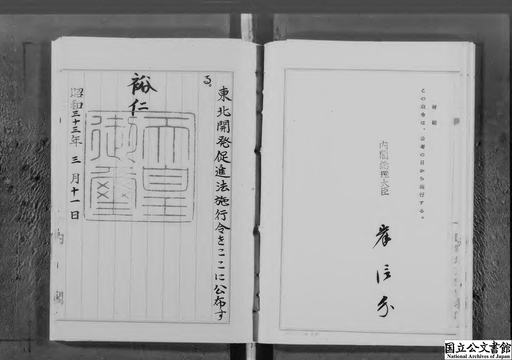 東北開発促進法施行令をここに公布す
る。
裕仁
天皇
御璽
昭和三十三年三月十一日
内閣
附則
この政令は、公布の日から施行する。
内閣総理大臣
岸信介
国立公文書館
National Archives of Japan